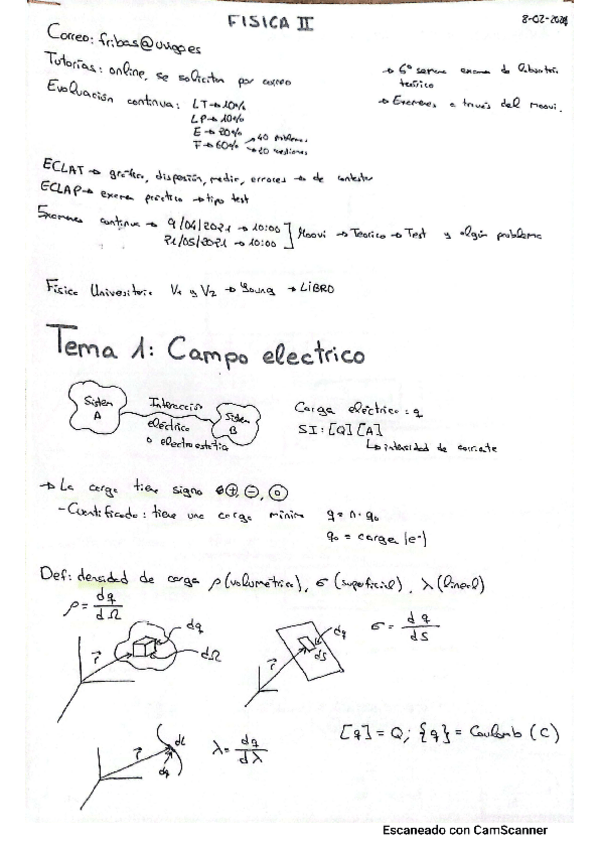 FISICA II
8-02-2021
Correo: fribas@uvigo.es
Tutorías: online, se solicitan por correo
→ 6º semana examen de laboratorio teórico
Evaluación continua: LT→10%
→ Examenes a través del Moovi.
LP→10%
E→20%
F→60% → 40 problemas
→ 20 cuestiones
ECLAT→ gráfico, disposión, medir, errores → de contestar
ECLAP→ examen práctico → tipo test
Examenes continua → 9/04/2021 → 10:00
21/05/2021 → 10:00
Moovi → Teorico → Test y algún problema
Física Universitaria V1 y V2 → Young → LIBRO
Tema 1: Campo electrico
Sistem A
Interacción eléctrica o electroestática
Sistem B
Carga eléctrica: q
SI: [Q] [A]
↳ intensidad de corriente
→ La carga tiene signo ⊕, ⊖, ⓪
- Cuantificada: tiene una carga mínima q = n · q₀
q₀ = carga |e⁻|
Def: densidad de carga ρ(volumétrica), σ(superficial), λ(lineal)
ρ = dq/dΩ
r⃗
dq
dΩ
r⃗
dq
dS
σ = dq/dS
r⃗
dl
dq
λ = dq/dλ
[q] = Q; {q} = Coulomb (C)
Escaneado con CamScanner